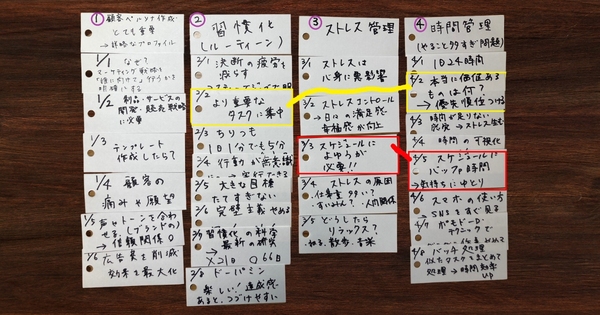 ①
顧客ペルソナ作成
とても重要
→詳細なプロファイル
1/1 なぜ?
マーケティング戦略を
「誰に向けて」行うかを
明確にする
1/2 製品・サービスの
開発・販売戦略
に必要
1/3 テンプレート
作成したら?
1/4 顧客の
痛みや願望
1/5 声やトーンを合わ
せる(ブランドの)
→信頼関係○
1/6 広告費を削減
効果を最大化
②
習慣化
(ルーティーン)
2/1 決断の疲労を
減らす
2/2 より重要な
タスクに集中
2/3 ちりつも
1日1分でも5分
2/4 行動が無意識
に→実行できる
2/5 大きな目標
たてすぎない
2/6 完璧主義やめる
2/7 習慣化の科学
最新の研究
×21日 ○66日
2/8 ドーパミン
楽しい!達成感
あると、つづけやすい
③
ストレス管理
3/1 ストレスは
心身に悪影響
3/2 ストレスコントロール
→日々の満足感
幸福感が向上
3/3 スケジュールに
よゆうが
必要!!
3/4 ストレスの原因
・仕事量多い?
・すいみん?・人間関係
3/5 どうしたら
リラックス?
・ねる、散歩、音楽
④
時間管理
(やること多すぎ問題)
4/1 1日24時間
4/2 本当に価値ある
ものは何?
→優先順位つける
4/3 時間が足りない
→ストレス生む
4/4 時間の可視化
4/5 スケジュールに
バッファ時間
→気持ちにゆとり
4/6 スマホの使い方
→SNSをすぐ見る
4/7 ポモドーロ・
テクニックで
4/8 バッチ処理
似たタスクをまとめて
処理→時間効率
UP